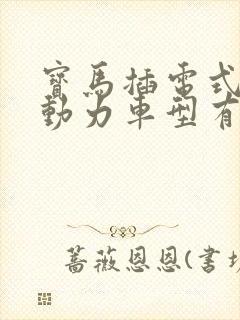 寶馬插電式
動力車型有
薔薇恩恩(書坊